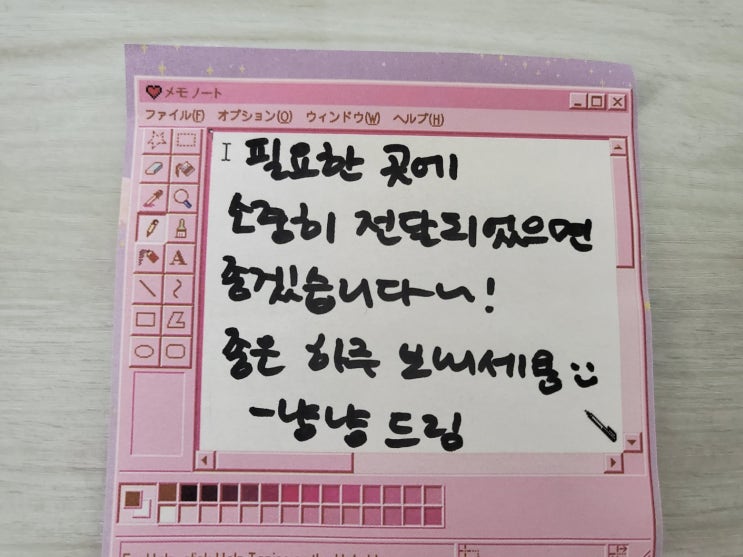 メモ ノート
ファイル(F) オプション(O) ウィンドウ(W) ヘルプ(H)
필요한 곳에
소중히 전달되었으면
좋겠습니다~!
좋은 하루 보내세용
-냥냥 드림
A